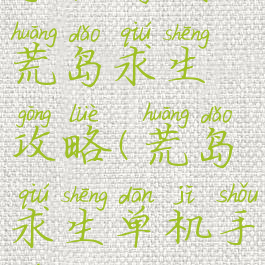 huāng dǎo qiú shēng
荒岛求生
gōng lüè huāng dǎo
攻略(荒岛
qiú shēng dān jī shǒu
求生单机手